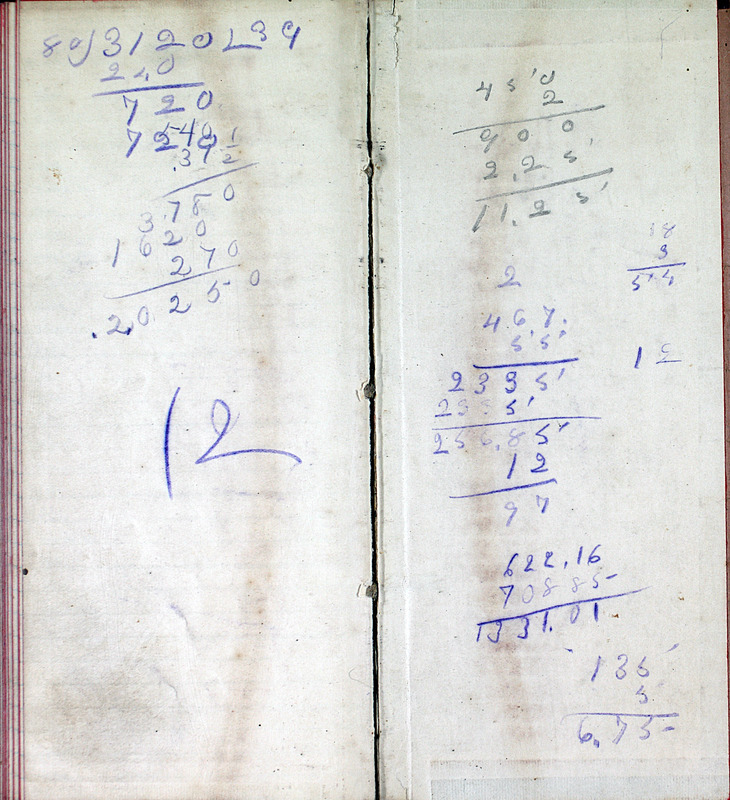 80)3120L39
240
720
720
540
.37 1/2
3.780
1620
270
.2,0250
12
450
2
900
2.25
11.25
18
3
54
2
4.67.
55
12
2335
2335
256.85
12
97
622.16
708 85
1331.01
135
5
6.75